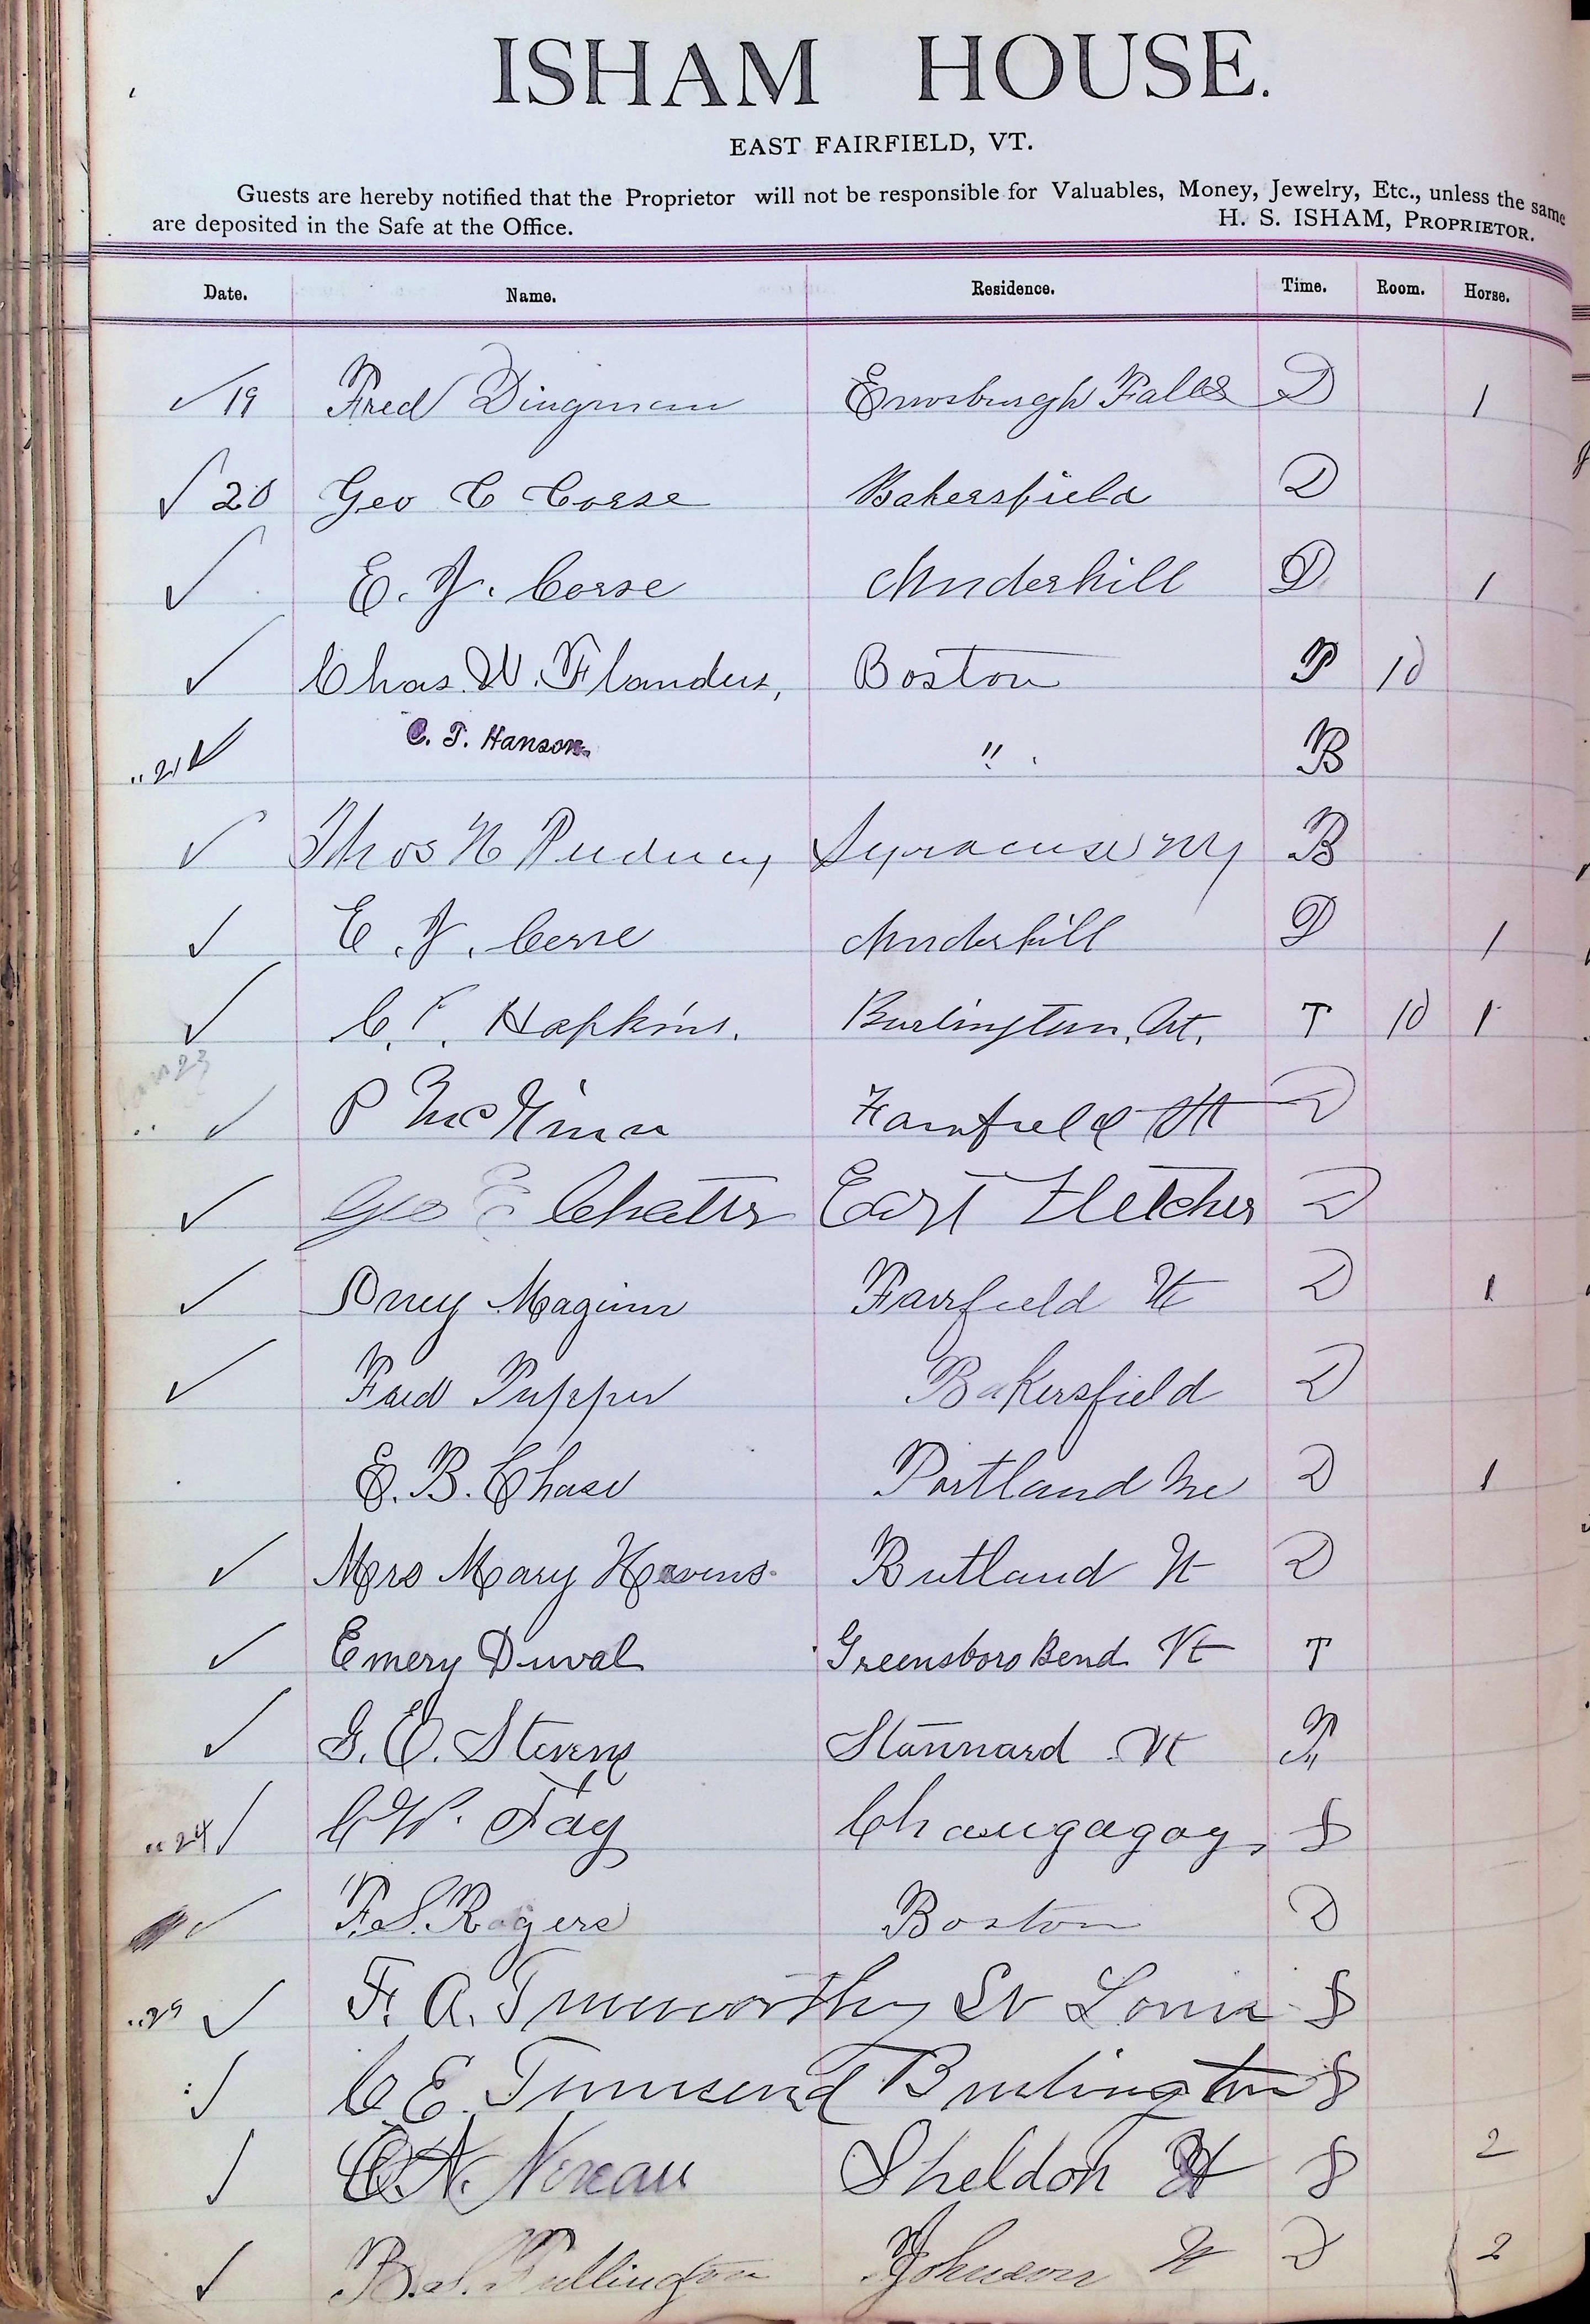 ISHAM HOUSE.
EAST FAIRFIELD, VT.
Guests are hereby notified that the Proprietor will not be responsible for Valuables, Money, Jewelry, Etc., unless the same
are deposited in the Safe at the Office. H. S. ISHAM, PROPRIETOR.
Date. Name. Residence. Time. Room. Horse.
✓ 19 Fred Dingman Enosburgh Falls D 1
✓ 20 Geo C Corse Bakersfield D
✓ E. J. Corse Underhill D 1
✓ Chas. W. Flanders, Boston 10
" 21 ✓ C. T. Hanson. " B
✓ Thos Syracuse NY B
✓ E. J. Corse Underhill D 1
✓ C. F. Hopkins. Burlington, Vt. T 10 1
23
" ✓ P Fairfield Vt D
✓ Geo E East Fletcher D
✓ Maginn Fairfield Vt D 1
✓ Fred Bakersfield D
E. B. Chase Portland Me D 1
✓ Mrs Mary Havens. Rutland Vt D
✓ Emery Duval Greensboro Bend Vt T
✓ G. O. Stevens Stannard Vt
" 24 ✓ C W. Fay S
✓ F. S. Rogers Boston D
✓ F. A. St Louis S
✓ C E Townsend Burlington S
✓ Sheldon Vt S 2
✓ B. S. Fullington Johnson Vt D 2